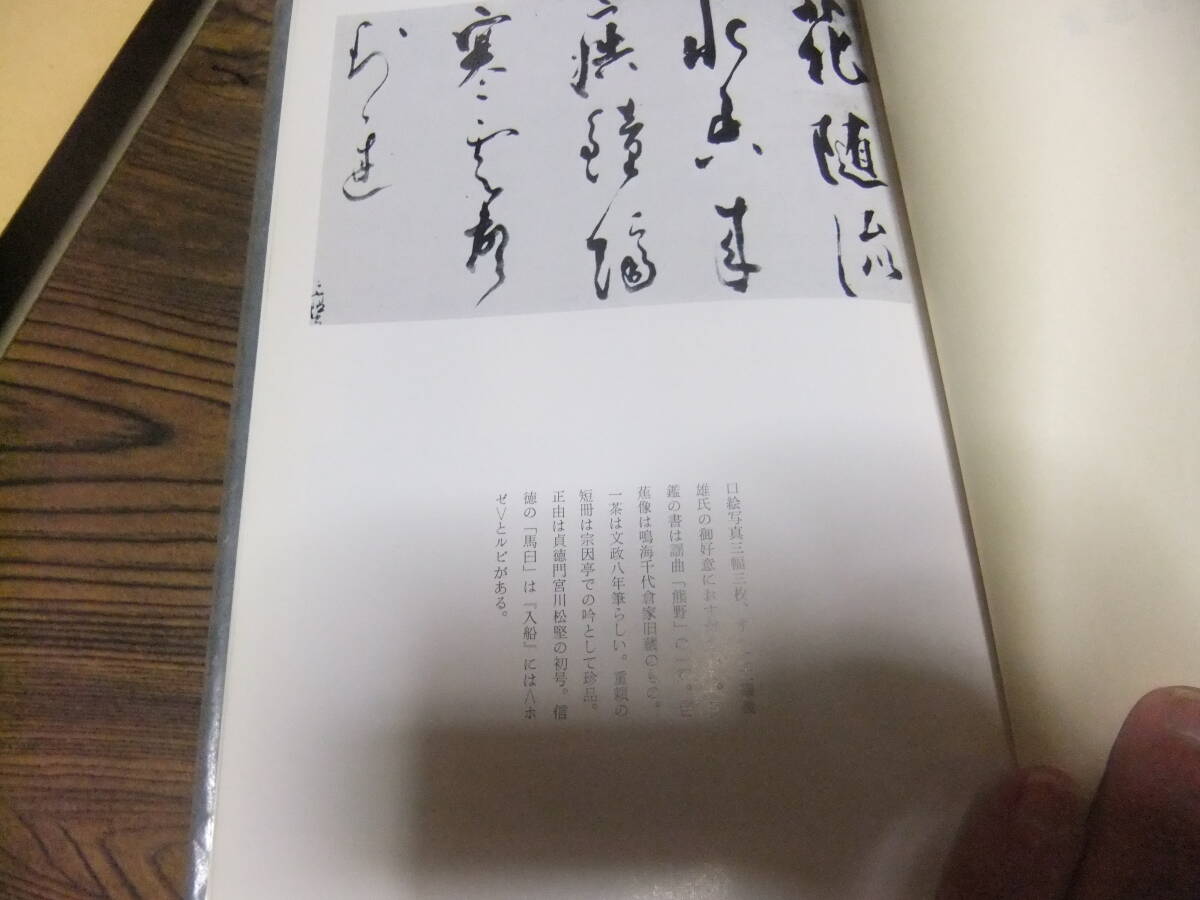 花随流
水香来
疾鐘隔
寒雲声
到遅
口絵写真三幅三枚、
雄氏の御好意におす
鑑の書は謡曲「熊野」の一文。芭
蕉像は鳴海千代倉家旧蔵のもの。
一茶は文政八年筆らしい。重頼の
短冊は宗因亭での吟として珍品。
正由は貞徳門宮川松堅の初号。信
徳の「馬曰」は『入船』には〈ホ
ゼ〉とルビがある。